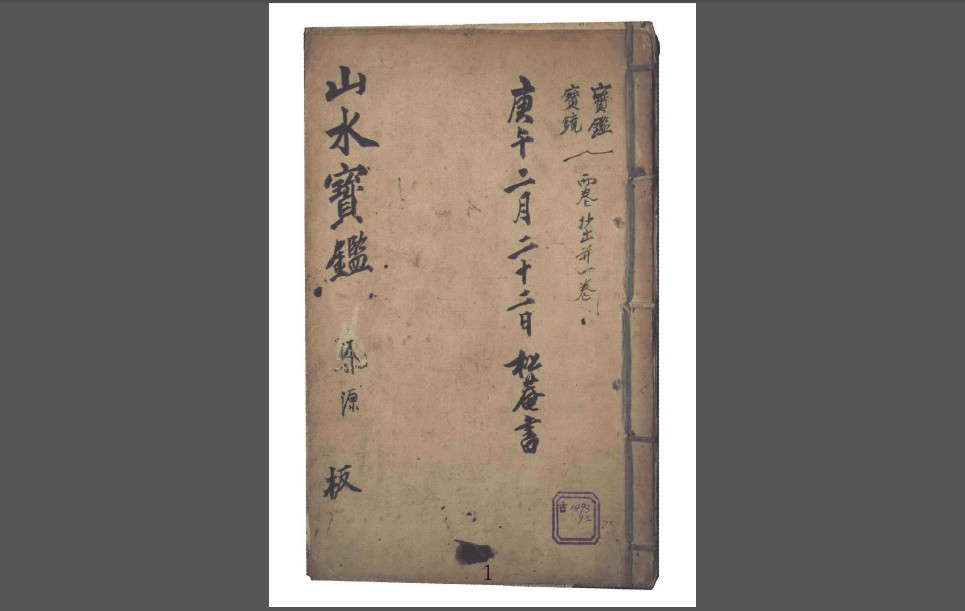 寶鑑
寶鏡
兩卷抄出並一卷
庚午二月二十二日 松菴書
山水寶鑑
源
板
古 1493
92
1